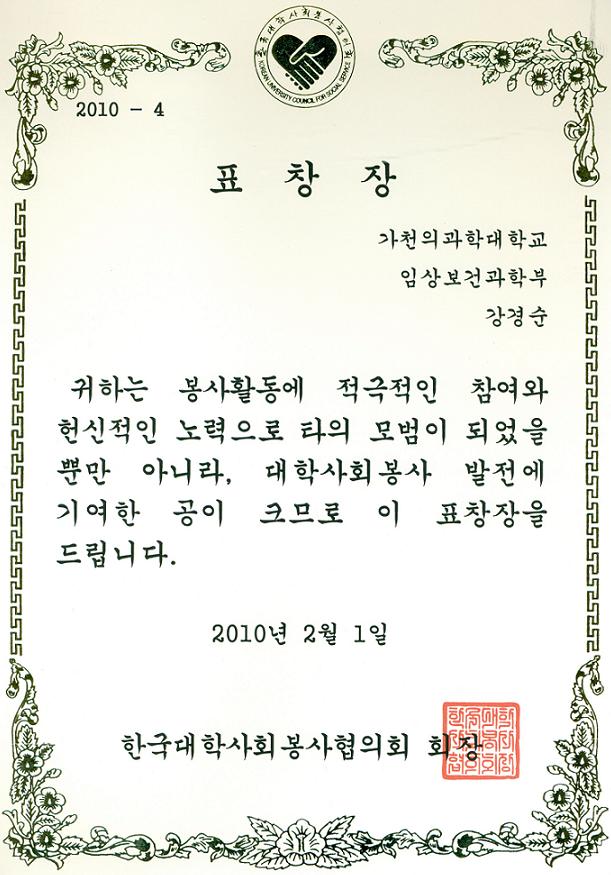 한국대학사회봉사협의회
KOREAN UNIVERSITY COUNCIL FOR SOCIAL SERVICE
2010 - 4
표 창 장
가천의과학대학교
임상보건과학부
강경순
귀하는 봉사활동에 적극적인 참여와
헌신적인 노력으로 타의 모범이 되었을
뿐만 아니라, 대학사회봉사 발전에
기여한 공이 크므로 이 표창장을
드립니다.
2010년 2월 1일
한국대학사회봉사협의회 회장